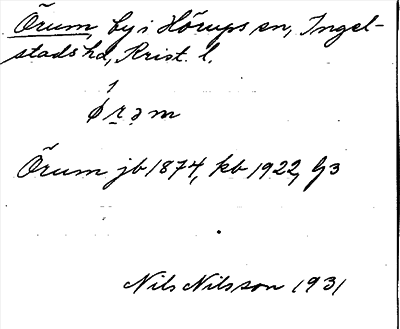 Örum, by i Hörups sn, Ingel-
stads hd, Krist. l.
ǿr̠əm
Örum jb 1874, kb 1922, G3
Nils Nilsson 1931